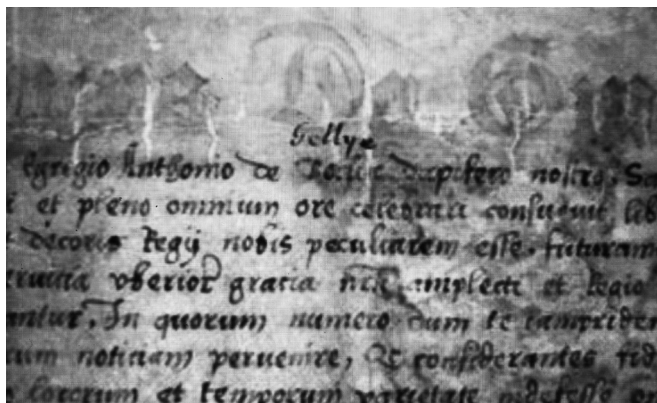 Gellye
Egregio Anthonio de dapifero nostro.
et pleno omnium ore celebrari consueuit lib
decoris Regij nobis peculiarem esse. futuram
vberior gratia amplecti et Regio
antur. In quorum numero dum te iampriden
noticiam peruenire, Et considerantes fid
locorum et temporum varietate indefesse